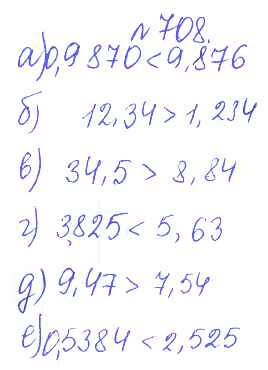 №708.
а) 0,9870 < 9,876
б) 12,34 > 1,234
в) 34,5 > 8,84
г) 3,825 < 5,63
д) 9,47 > 7,54
е) 0,5384 < 2,525